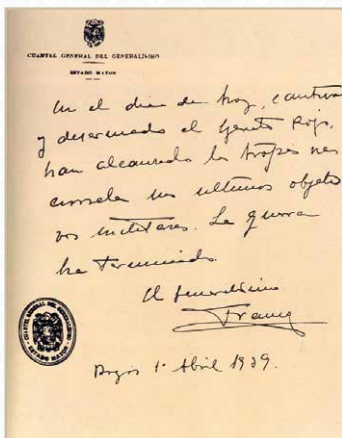 CUARTEL GENERAL DEL GENERALÍSIMO
ESTADO MAYOR
En el día de hoy, cautivo
y desarmado el Ejército Rojo,
han alcanzado las tropas na-
cionales sus últimos objeti-
vos militares. La guerra
ha terminado.
El Generalísimo
Franco
Burgos 1º Abril 1939.
CUARTEL GENERAL DEL GENERALÍSIMO
ESTADO MAYOR